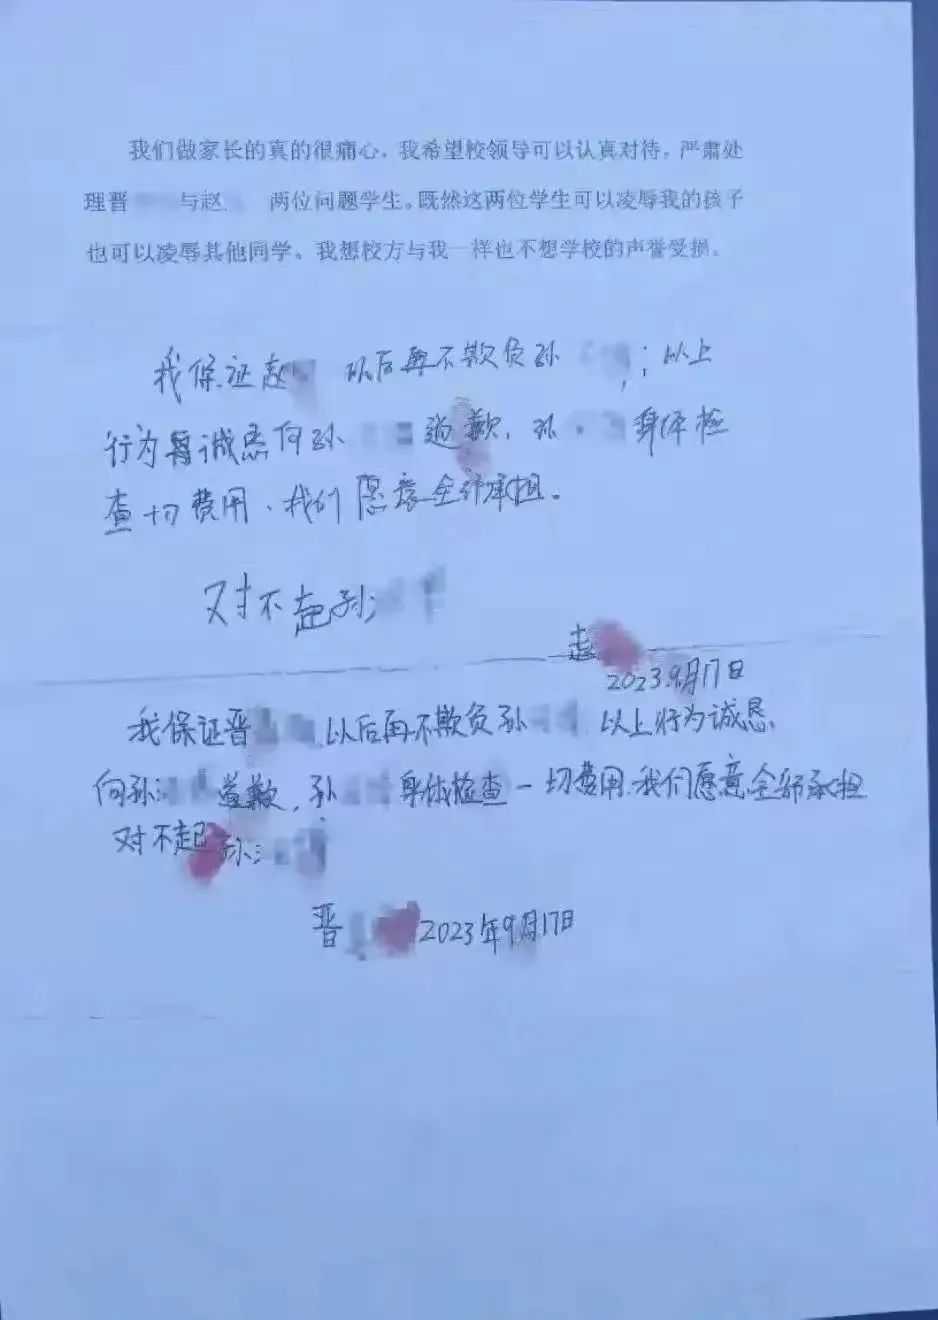 我们做家长的真的很痛心，我希望校领导可以认真对待，严肃处
理晋 与赵 两位问题学生。既然这两位学生可以凌辱我的孩子
也可以凌辱其他同学。我想校方与我一样也不想学校的声誉受损。
我保证赵 以后再不欺负孙 ；以上
行为 诚恳向孙 道歉，孙 身体检
查一切费用、我们愿意全部承担。
对不起孙
赵
2023.9月17日
我保证晋 以后再不欺负孙 以上行为诚恳
向孙 道歉，孙 身体检查一切费用.我们愿意全部承担
对不起孙
晋 2023年9月17日